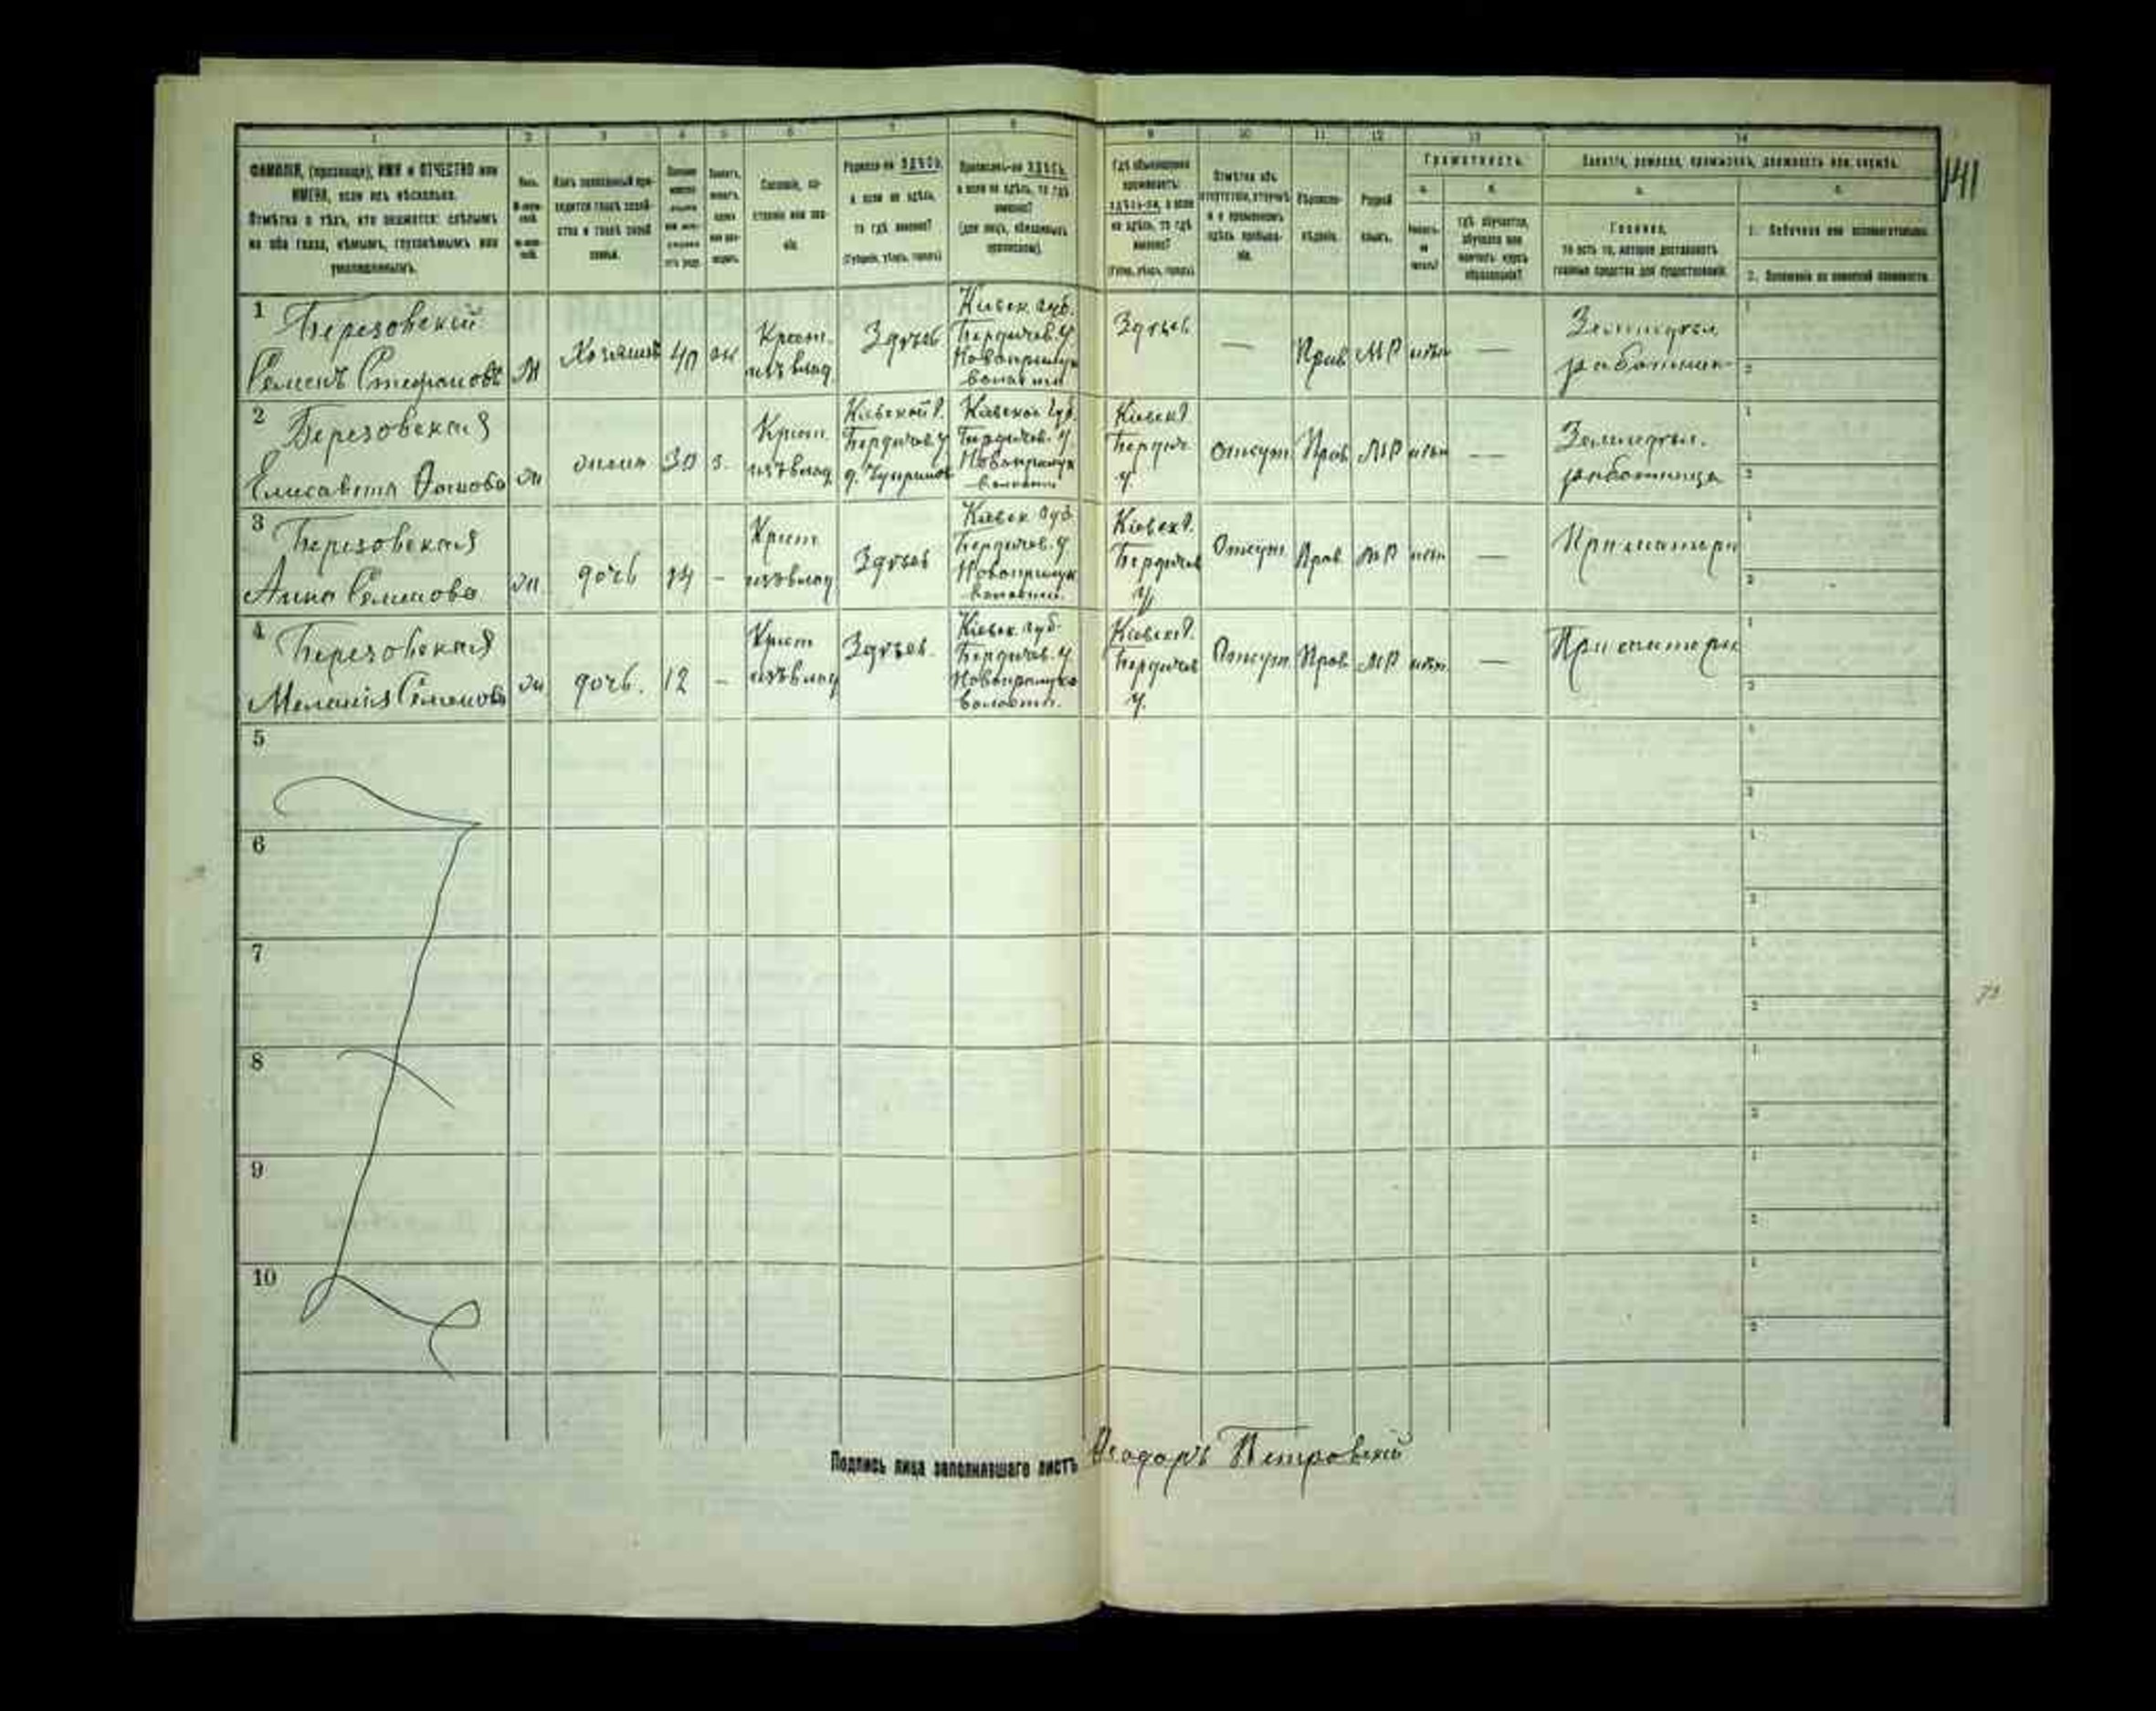 1 2 3 4 5 6 7 8 9 10 11 12 13 14
141
ФАМИЛІЯ, (прозвище), ИМЯ и ОТЧЕСТВО или
ИМЕНА, если ихъ нѣсколько.
Отмѣтка о тѣхъ, кто окажется: слѣпымъ
на оба глаза, нѣмымъ, глухонѣмымъ или
умалишеннымъ.
Полъ.
Сословіе, со-
стояніе или зва-
ніе.
Родился-ли ЗДѢСЬ,
а если не здѣсь,
то гдѣ именно?
(Губернія, уѣздъ, городъ)
Приписанъ-ли ЗДѢСЬ,
а если не здѣсь, то гдѣ
именно?
(для лицъ, обязанныхъ
припискою).
Гдѣ обыкновенно
проживаетъ:
здѣсь-ли, а если
не здѣсь, то гдѣ
именно?
(Губер., уѣздъ, городъ)
Отмѣтка объ
отсутствіи, отлучкѣ
и о временномъ
здѣсь пребыва-
ніи.
Вѣроиспо-
вѣданіе.
Родной
языкъ.
Грамотность.
а. б.
Умѣетъ-
ли
читать?
гдѣ обучается,
обучался или
кончилъ курсъ
образованія?
Занятіе, ремесло, промыселъ, должность или служба.
а. б.
Главное,
то есть то, которое доставляетъ
главныя средства для существованія.
1. Побочное или вспомогательное.
2. Положеніе по воинской повинности.
1 Березовскій
Семенъ Стефановъ
М
Хозяинъ
40
Крест.
изъ влад.
Здѣсь
Киевск. губ.
Бердичев. у
Новоприлук
волости
Здѣсь
—
Прав
МР
нѣтъ
—
Земледѣл.
работник
2 Березовская
Елисавета
30
з.
Крест.
изъ влад.
Киевской г.
Бердичев. у
Киевской губ.
Бердичев. у
Новоприлук
волости
Киевск г.
Бердич.
у.
Отсут
Прав
МР
нѣтъ
—
Земледѣл.
работница
3 Березовская
Анна Семенова
дочь
14
-
Крест
изъ влад
Здѣсь
Киевск. губ
Бердичев. у
Новоприлук
волости.
Киевск г.
Бердичев
у
Отсут
Прав
МР
нѣтъ
—
При матери
4 Березовская
Меланія Семенова
дочь.
12
-
Крест
изъ влад
Здѣсь.
Киевск. губ.
Бердичев. у
Новоприлук
волости.
Киевск г.
Бердичев
у.
Отсут
Прав
МР
нѣтъ
—
При матери
5
6
7
8
9
10
Подпись лица заполнившаго листъ Ѳеодоръ Петровскій